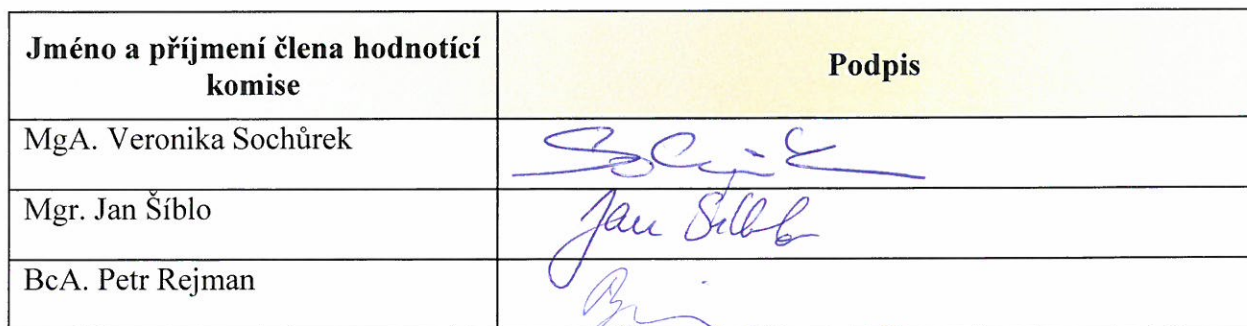 Jméno a příjmení člena hodnotící
komise
Podpis
MgA. Veronika Sochůrek
Mgr. Jan Šíblo
Jan Šíblo
BcA. Petr Rejman